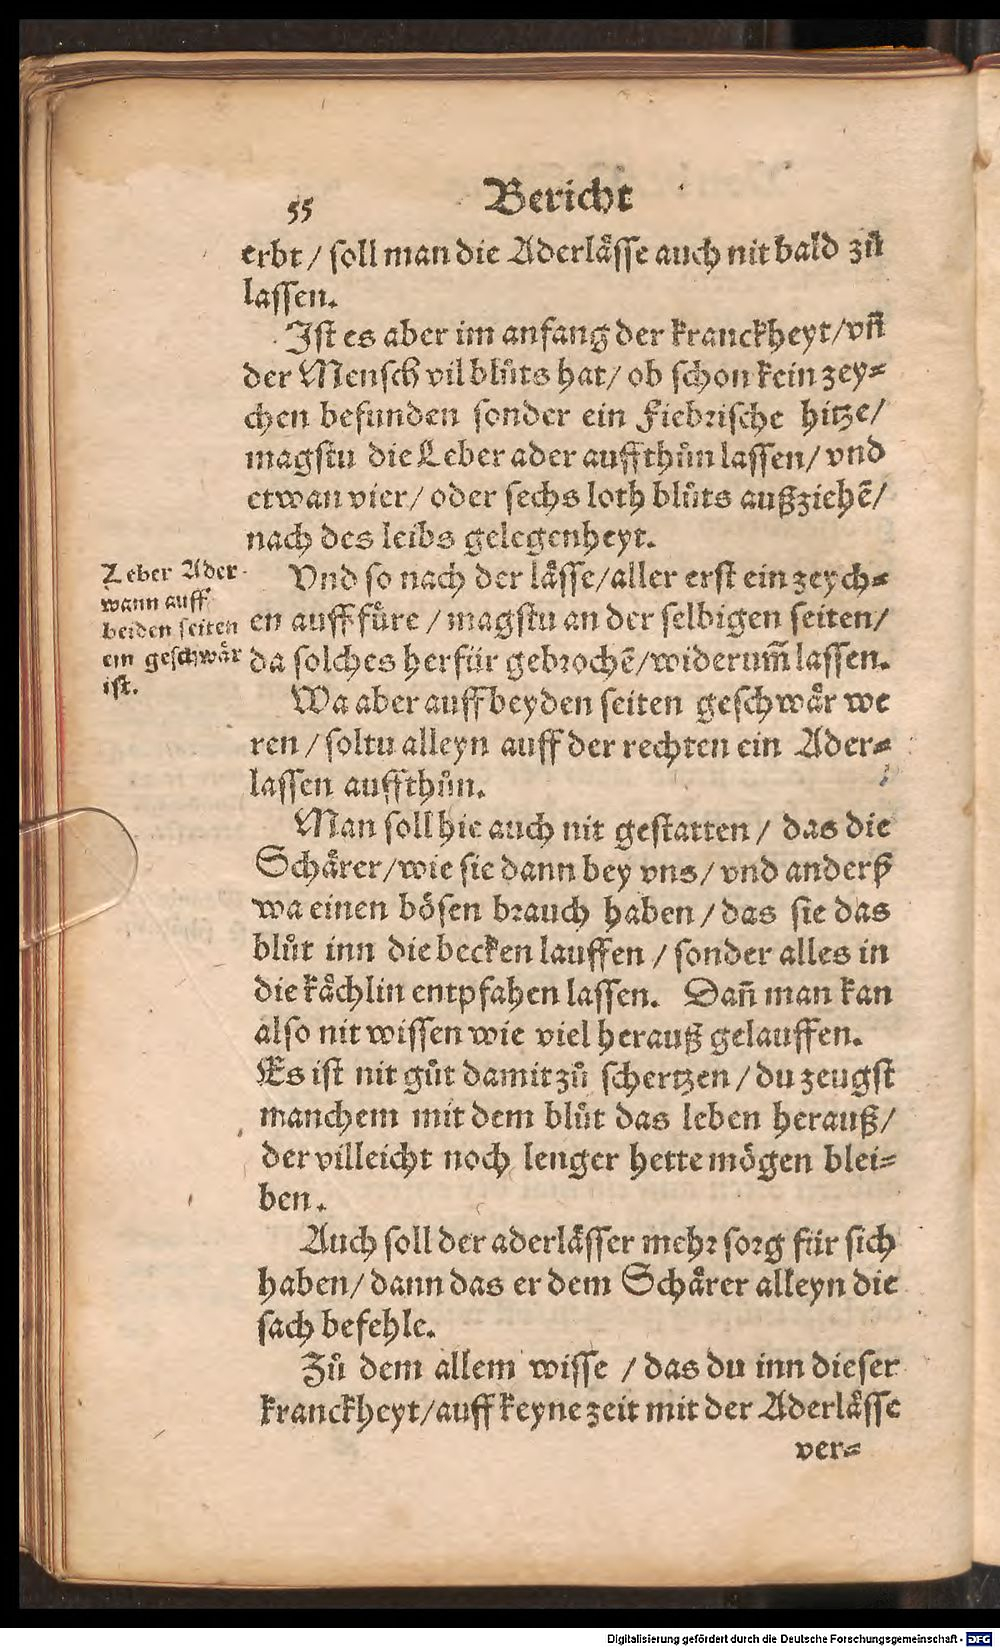 55 Bericht
erbt / soll man die Aderlåsse auch nit bald zů
lassen.
Ist es aber im anfang der kranckheyt/vñ
der Mensch vil blůts hat/ ob schon kein zey⸗
chen befunden sonder ein Fiebrische hitze/
magstu die Leber ader auffthůn lassen/ vnd
etwan vier/ oder sechs loth blůts außziehẽ/
nach des leibs gelegenheyt.
Vnd so nach der låsse/aller erst ein zeych⸗
en auff füre / magstu an der selbigen seiten/
da solches herfür gebrochẽ/widerum̃ lassen.
Leber Ader
wann auff
beiden seiten
ein geschwår
ist.
Wa aber auff beyden seiten geschwår we
ren / soltu alleyn auff der rechten ein Ader⸗
lassen auffthůn.
Man soll hie auch nit gestatten / das die
Schårer/wie sie dann bey vns/ vnd anderß
wa einen bösen brauch haben / das sie das
blůt inn die becken lauffen / sonder alles in
die kåchlin entpfahen lassen. Dañ man kan
also nit wissen wie viel herauß gelauffen.
Es ist nit gůt damit zů schertzen / du zeugst
manchem mit dem blůt das leben herauß/
der villeicht noch lenger hette mögen blei⸗
ben.
Auch soll der aderlåsser mehr sorg für sich
haben/ dann das er dem Schårer alleyn die
sach befehle.
Zů dem allem wisse / das du inn dieser
kranckheyt/auff keyne zeit mit der Aderlåsse
ver⸗
Digitalisierung gefördert durch die Deutsche Forschungsgemeinschaft - DFG